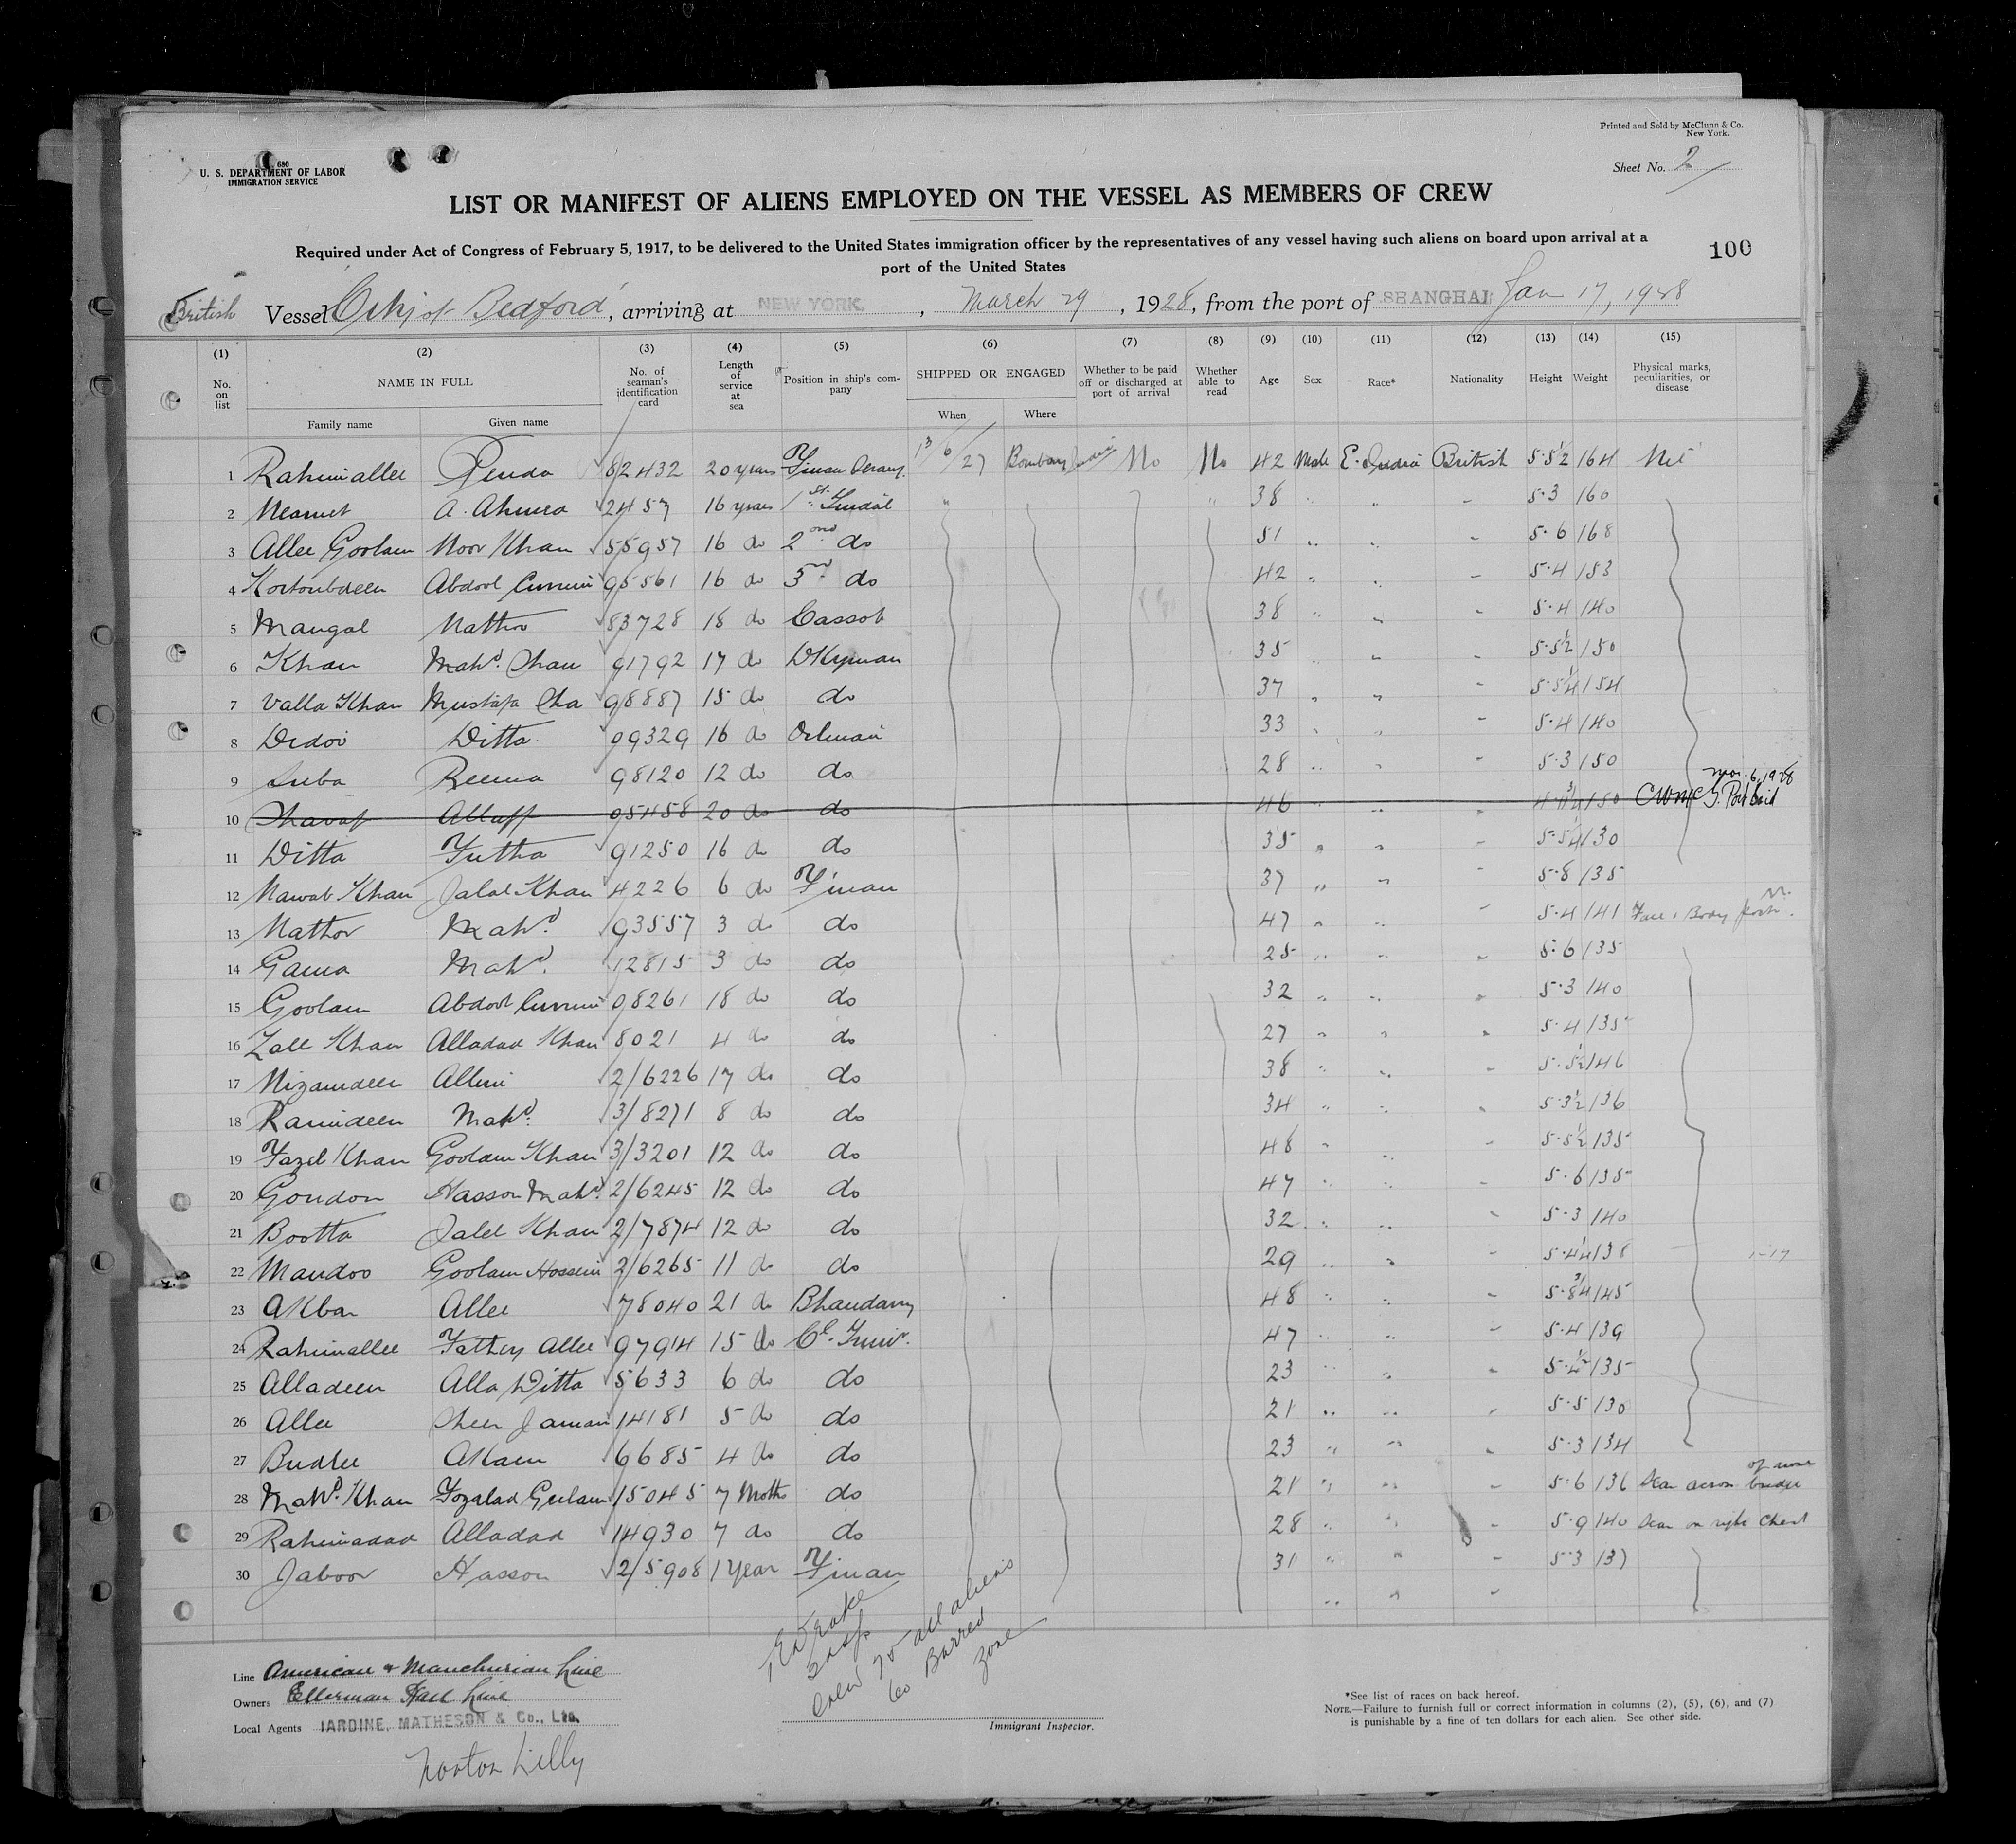 Printed and Sold by McClunn & Co.
New York.
680
U. S. DEPARTMENT OF LABOR
IMMIGRATION SERVICE
Sheet No. 2
LIST OR MANIFEST OF ALIENS EMPLOYED ON THE VESSEL AS MEMBERS OF CREW
Required under Act of Congress of February 5, 1917, to be delivered to the United States immigration officer by the representatives of any vessel having such aliens on board upon arrival at a
port of the United States
100
British Vessel City of Bedford, arriving at NEW YORK, March 29, 1928, from the port of SHANGHAI Jan 17, 1928
(1) (2) (3) (4) (5) (6) (7) (8) (9) (10) (11) (12) (13) (14) (15)
No. on list NAME IN FULL No. of seaman's identification card Length of service at sea Position in ship's company SHIPPED OR ENGAGED Whether to be paid off or discharged at port of arrival Whether able to read Age Sex Race* Nationality Height Weight Physical marks, peculiarities, or disease
Family name Given name When Where
1 Rahimallee Penda 82432 20 years F'man Serang 13/6/27 Bombay India No No 42 Male E. India British 5.5½ 164 Nil
2 A. Ahmed 2457 16 years 1st Tindal " " 38 " " " 5.3 160
3 Allee Goolam Noor Khan 55957 16 do 2nd do 51 " " " 5.6 168
4 Abdool 95561 16 do 3rd do 42 " " " 5.4 153
5 Mangal Nathoo 83728 18 do Cassob 38 " " " 5.4 140
6 Khan Mahd. Chan 91792 17 do DKyman 35 " " " 5.5½ 150
7 Valla Khan Mustafa Cha 98887 15 do do 37 " " " 5.5¼ 154
8 Didoo Ditta 09329 16 do Oilman 33 " " " 5.4 140
9 Suba Reema 98120 12 do do 28 " " " 5.3 150
10 Allaff 05458 20 do do 46 " " " 150 Port Said Mar. 6, 1928
11 Ditta Futha 91250 16 do do 35 " " " 5.5¼ 130
12 Nawab Khan Jalal Khan 4226 6 do F'man 37 " " " 5.8 135
13 Nathoo Mahd. 93557 3 do do 47 " " " 5.4 141 Face & Body
14 Gama Mahd. 12815 3 do do 25 " " " 5.6 135
15 Goolam Abdool 08261 18 do do 32 " " " 5.3 140
16 Zall Khan Alladad Khan 8021 4 do do 27 " " " 5.4 135
17 Nizamdeen Allem 2/6226 17 do do 38 " " " 5.5½ 146
18 Ramdeen Mahd. 3/8271 8 do do 34 " " " 5.3½ 136
19 Fazel Khan Goolam Khan 3/3201 12 do do 48 " " " 5.5½ 135
20 Gondon Hasson Mahd. 2/6245 12 do do 47 " " " 5.6 135
21 Bootta Jalel Khan 2/7874 12 do do 32 " " " 5.3 140
22 Mandoo Goolam Hossein 2/6265 11 do do 29 " " " 5.4¼ 138 1-17
23 Akbar Allee 78040 21 do Bhandary 48 " " " 5.8¾ 145
24 Rahimallee Fathey Allee 97914 15 do Cl. Trimr. 47 " " " 5.4 139
25 Alladeen Alla Ditta 5633 6 do do 23 " " " 135
26 Allee Sheer Jaman 14181 5 do do 21 " " " 5.5 130
27 Budhee Akam 6685 4 do do 23 " " " 5.3 134
28 Mahd. Khan Fozalad Gulam 15045 7 Moths do 21 " " " 5.6 136 Scar across bridge of nose
29 Rahimadad Alladad 14930 7 do do 28 " " " 5.9 140 Scar on right Chest
30 Jaboor Hasson 2/5908 1 Year F'man 31 " " " 5.3 137
Crew 70 all aliens
60 Barred
Zone
Line American & Manchurian Line
Owners Ellerman Hall Line
Local Agents JARDINE, MATHESON & Co., Ltd.
Norton Lilly
Immigrant Inspector.
*See list of races on back hereof.
NOTE.—Failure to furnish full or correct information in columns (2), (5), (6), and (7)
is punishable by a fine of ten dollars for each alien. See other side.